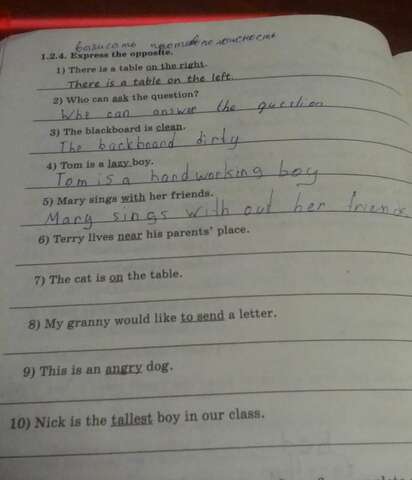 1.2.4. Express the opposite.
1) There is a table on the right.
There is a table on the left.
2) Who can ask the question?
Who can answer the question
3) The blackboard is clean.
The backboard dirty
4) Tom is a lazy boy.
Tom is a hardworking boy
5) Mary sings with her friends.
Mary sings with out her friends
6) Terry lives near his parents' place.
7) The cat is on the table.
8) My granny would like to send a letter.
9) This is an angry dog.
10) Nick is the tallest boy in our class.